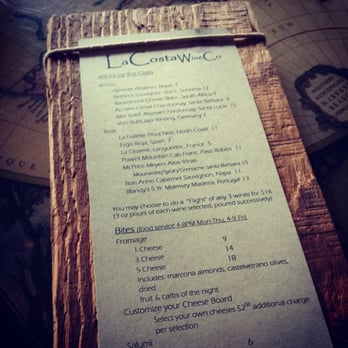 LaCostaWineCo
Wines by the Glass
Whites
Albariño, Napa 7
Sauvignon Blanc, Sonoma 12
Chenin Blanc, South Africa
Chardonnay, Santa Barbara 9
Mer Soleil Reserve Chardonnay, Santa Lucia 15
Von Buhl Jazz Riesling, Germany 7
Reds
La Follette Pinot Noir, North Coast 11
Ergo Rioja, Spain 7
La Closerie, Languedoc, France 5
Powell Mountain Cab Franc, Paso Robles 11
McPrice Meyers Altas Vinas
Mourvedre/Syrah/Grenache, Santa Barbara 15
Bon Anno Cabernet Sauvignon, Napa 11
Blandy's 5 Yr. Malmsey Madeira, Portugal 13
You may choose to do a "Flight" of any 3 wines for $16
(3 oz pours of each wine selected, poured successively)
Bites (food service 4-8PM Mon-Thu, 4-9 Fri)
Fromage
1 Cheese 9
3 Cheese 14
5 Cheese 18
Includes: marcona almonds, castelvetrano olives,
dried
fruit & carbs of the night
Customize your Cheese Board
Select your own cheeses $2.00 additional charge
per selection
Salumi 6